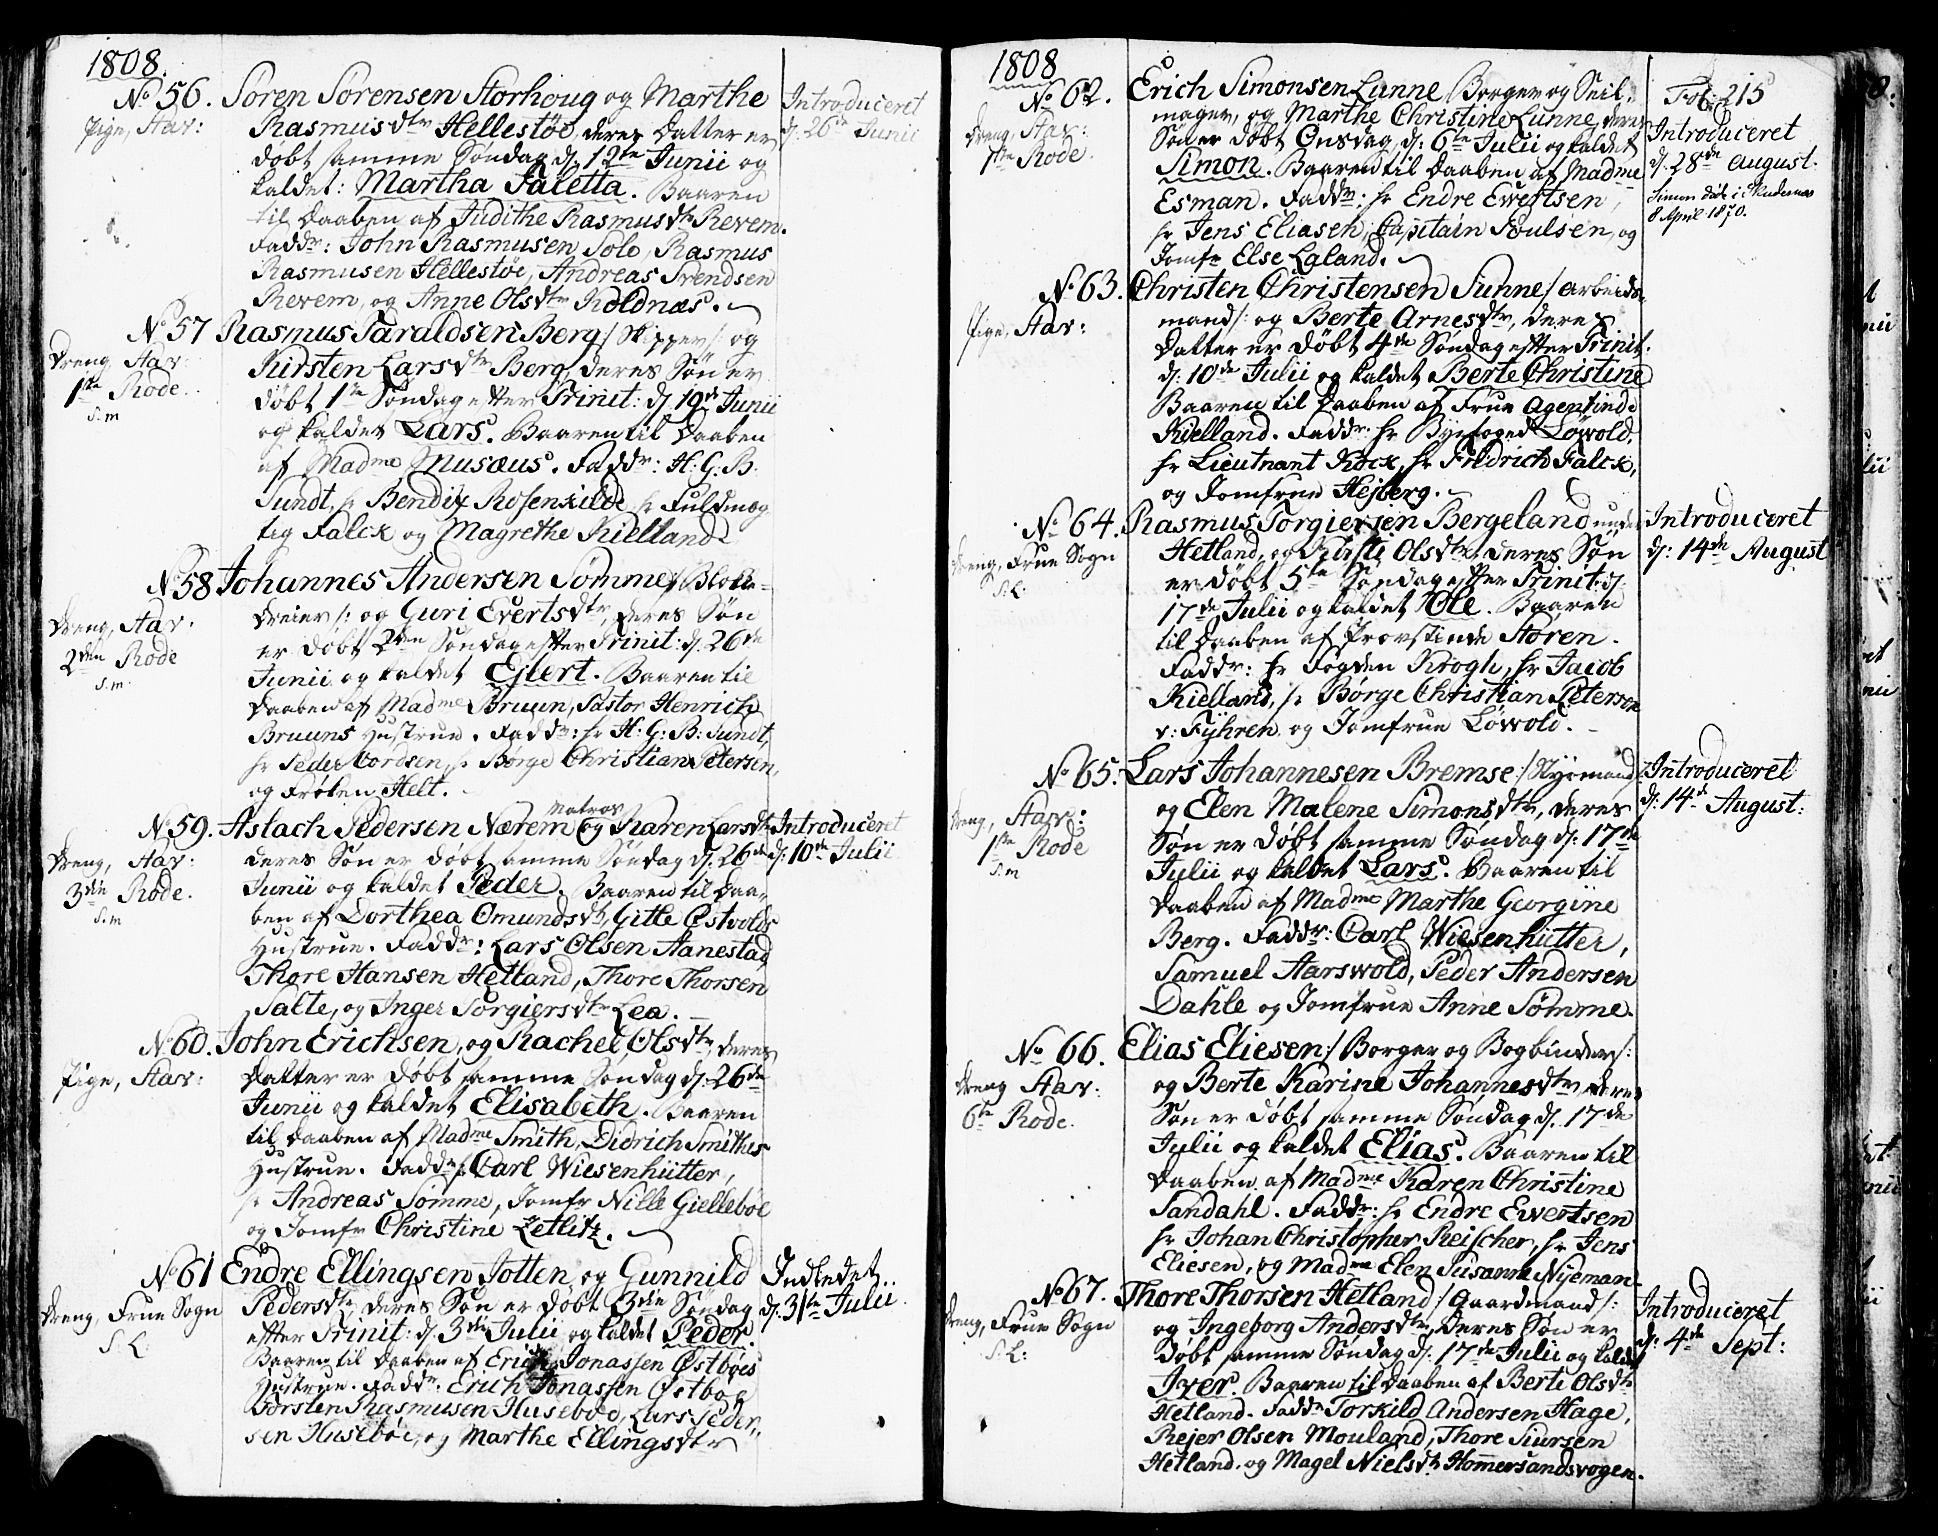 1808.
No 56. Søren Sørensen Storhoug og Marthe
Pige, Stav:
Rasmusdtr Hellestøe, deres Datter er
døbt samme Søndag d: 12te Junii og
kaldet: Martha Taletta. Baaren
til Daaben af Judithe Rasmusdtr Revem.
Faddr: John Rasmusen Sole, Rasmus
Rasmusen Hellestøe, Andreas Svendsen
Revem, og Anne Olsdtr Koldnæs.
Introduceret
d: 26de Junii
No 57 Rasmus Taraldsen Berg /: Skipper :/ og
Dreng, Stav:
1ste Rode.
S.m
Kirsten Larsdtr Berg, deres Søn er
døbt 1te Søndag efter Trinit: d: 19de Junii
og kaldet Lars. Baaren til Daaben
af Madme Musæus. Faddr: H: G: B:
Sundt, hr Bendix Rosenkilde, hr Fuldmæg
tig Falck og Magrethe Kielland.
No 58 Johannes Andersen Sømme /: Blokke-
Dreng, Stav:
2den Rode
S.m.
dreier :/ og Guri Evertsdtr, deres Søn
er døbt 2den Søndag efter Trinit: d: 26de
Junii og kaldet Ejert. Baaren til
Daaben af Madme Bruun, Pastor Henrich
Bruuns Hustrue. Faddr: hr H: G: B: Sundt,
hr Peder Cordsen, hr Børge Christian Petersen,
og Frøken Helt.
No 59. Aslach Pedersen Nærem Matros og Karen Larsdtr
Dreng, Stav:
3die Rode.
S.m
deres Søn er døbt samme Søndag d: 26de
Junii og kaldet Peder. Baaren til Daa-
ben af Dorthea Omundsdtr, Gitle Østvolds
Hustrue. Faddr: Lars Olsen Aanestad,
Thore Hansen Hetland, Thore Thorsen
Salte, og Inger Torgiersdtr Lea.
Introduceret
d: 10de Julii
No 60. John Erichsen, og Rachel Olsdtr, deres
Pige, Stav:
Datter er døbt samme Søndag d: 26de
Junii og kaldet Elisabeth. Baaren
til Daaben af Madme Smith, Didrich Smithes
Hustrue. Faddr: Carl Wiesenhütter,
hr Andreas Sømme, Jomfr Nille Giellebøe
og Jomfr Christine Zetlitz.
No 61 Endre Ellingsen Jotten og Gunnild
Dreng, Frue Sogn
S: L:
Pedersdtr, deres Søn er døbt 3die Søndag
efter Trinit: d: 3die Julii og kaldet Peder.
Baaren til Daaben af Erich Jonassen Østbøes
Hustrue. Faddr: Erich Jonassen Østbøe
Torsten Rasmusen Husebøe, Lars Peder-
sen Husebøe, og Marthe Ellingsdtr
Indledet
d: 31te Julii
1808
No 62. Erich Simonsen Lunne, Borger og Seil-
Dreng, Stav:
1ste Rode.
mager, og Marthe Christine Lunne, deres
Søn er døbt Onsdag, d: 6te Julii og kaldet
Simon. Baaren til Daaben af Madme
Esman. Faddr: hr Endre Ewertsen,
hr Jens Eliasen, Capitain Poulsen, og
Jomfr Else Laland.
Fol: 215
Introduceret
d: 28de August.
Simon døde i Skudenes
8 April 1870.
No 63. Christen Christensen Sunne /: Arbeids-
Pige, Stav:
mand :/ og Berte Arnesdtr, deres
Datter er døbt 4de Søndag efter Trinit:
d: 10de Julii og kaldet Berte Christine
Baaren til Daaben af Frue Agentinde
Kielland. Faddr: hr Byefoged Løwold,
hr Lieutnant Kock, hr Fridrich Falck,
og Jomfrue Hejberg.
No 64. Rasmus Torgiersen Bergeland under
Dreng, Frue Sogn
S: L:
Hetland, og Kirsti Olsdtr, deres Søn
er døbt 5te Søndag efter Trinit: d:
17de Julii og kaldet Ole. Baaren
til Daaben af Provstinde Støren.
Faddr: hr Fogden Krogh, hr Jacob
Kielland, hr Børge Christian Peterson
v: Fyhren og Jomfrue Løwold.
Introduceret
d: 14de August
No 65. Lars Johannesen Bremse /: Nyemand :/
Dreng, Stav:
1ste Rode
S.m
og Elen Malene Simonsdtr, deres
Søn er døbt samme Søndag d: 17de
Julii og kaldet Lars. Baaren til
Daaben af Madme Marthe Georgine
Berg. Faddr: Carl Wiesenhütter,
Samuel Aarswold, Peder Andersen
Dahle og Jomfrue Anne Sømme.
Introduceret
d: 14de August:
No 66. Elias Eliesen /: Borger og Bogbinder :/
Dreng Stav:
6te Rode.
og Berte Karine Johannesdtr, deres
Søn er døbt samme Søndag d: 17de
Julii og kaldet Elias. Baaren til
Daaben af Madme Karen Christine
Sandahl. Faddr: hr Endre Ewertsen
hr Johan Christopher Reischer, hr Jens
Eliesen, og Madme Elen Susanne Nyeman
No 67. Thore Thorsen Hetland /: Gaardmand :/
Dreng, Frue Sogn
S: L:
og Ingeborg Andersdtr, deres Søn er
døbt samme Søndag d: 17de Julii og kaldet
Iver. Baaren til Daaben af Berte Olsdtr
Hetland. Faddr Torkild Andersen Hage,
Rejer Olsen Mouland, Thore Siursen
Hetland. og Magel Nielsdtr Hommersandsvogen.
Introduceret
d: 4de Sept: